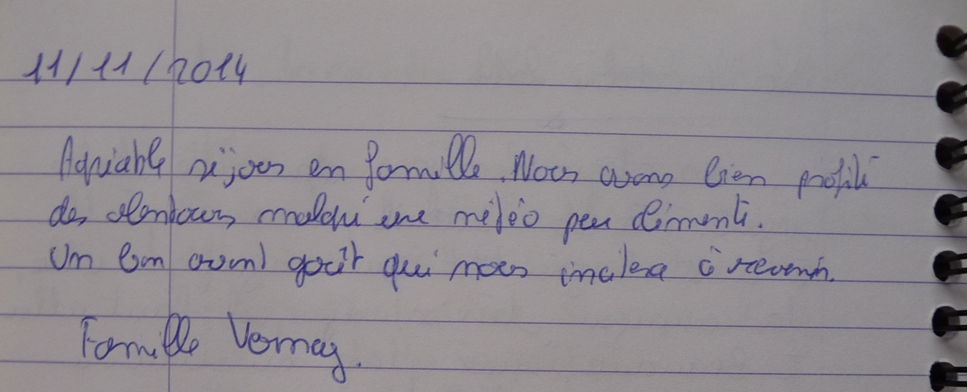 11/11/2014
Agréable séjour en famille. Nous avons bien profité
des alentours malgré une météo peu clémente.
Un bon avant goût qui nous incitera à revenir.
Famille Vernay.